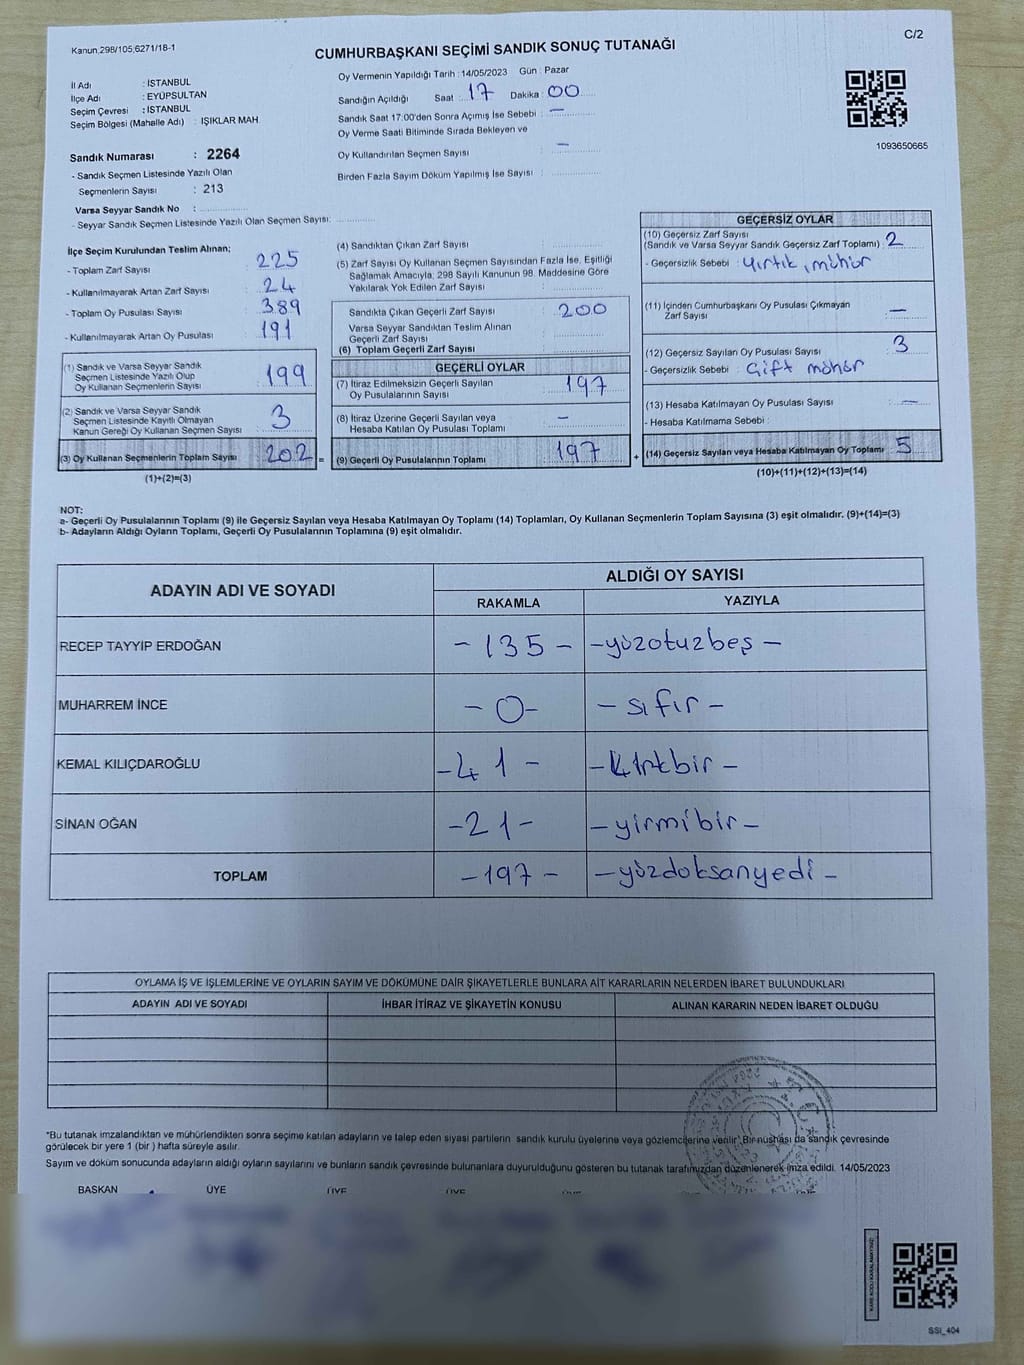 Kanun,298/105,6271/18-1
C/2
CUMHURBAŞKANI SEÇİMİ SANDIK SONUÇ TUTANAĞI
İl Adı : İSTANBUL
İlçe Adı : EYÜPSULTAN
Seçim Çevresi : İSTANBUL
Seçim Bölgesi (Mahalle Adı) : IŞIKLAR MAH.
Sandık Numarası : 2264
- Sandık Seçmen Listesinde Yazılı Olan
Seçmenlerin Sayısı : 213
Varsa Seyyar Sandık No :
- Seyyar Sandık Seçmen Listesinde Yazılı Olan Seçmen Sayısı:
Oy Vermenin Yapıldığı Tarih : 14/05/2023 Gün : Pazar
Sandığın Açıldığı Saat : 17 Dakika : 00
Sandık Saat 17:00'den Sonra Açımış İse Sebebi : —
Oy Verme Saati Bitiminde Sırada Bekleyen ve
Oy Kullandırılan Seçmen Sayısı : —
Birden Fazla Sayım Döküm Yapılmış İse Sayısı :
1093650665
İlçe Seçim Kurulundan Teslim Alınan;
- Toplam Zarf Sayısı : 225
- Kullanılmayarak Artan Zarf Sayısı : 24
- Toplam Oy Pusulası Sayısı : 389
- Kullanılmayarak Artan Oy Pusulası : 191
(1) Sandık ve Varsa Seyyar Sandık
Seçmen Listesinde Yazılı Olup
Oy Kullanan Seçmenlerin Sayısı : 199
(2) Sandık ve Varsa Seyyar Sandık
Seçmen Listesinde Kayıtlı Olmayan
Kanun Gereği Oy Kullanan Seçmen Sayısı : 3
(3) Oy Kullanan Seçmenlerin Toplam Sayısı : 202 =
(1)+(2)=(3)
(4) Sandıktan Çıkan Zarf Sayısı :
(5) Zarf Sayısı Oy Kullanan Seçmen Sayısından Fazla İse, Eşitliği
Sağlamak Amacıyla, 298 Sayılı Kanunun 98. Maddesine Göre
Yakılarak Yok Edilen Zarf Sayısı :
Sandıkta Çıkan Geçerli Zarf Sayısı : 200
Varsa Seyyar Sandıktan Teslim Alınan
Geçerli Zarf Sayısı :
(6) Toplam Geçerli Zarf Sayısı :
GEÇERLİ OYLAR
(7) İtiraz Edilmeksizin Geçerli Sayılan
Oy Pusulalarının Sayısı : 197
(8) İtiraz Üzerine Geçerli Sayılan veya
Hesaba Katılan Oy Pusulası Toplamı : —
(9) Geçerli Oy Pusulalarının Toplamı : 197 +
GEÇERSİZ OYLAR
(10) Geçersiz Zarf Sayısı
(Sandık ve Varsa Seyyar Sandık Geçersiz Zarf Toplamı) : 2
- Geçersizlik Sebebi : Yırtık, mühür
(11) İçinden Cumhurbaşkanı Oy Pusulası Çıkmayan
Zarf Sayısı : —
(12) Geçersiz Sayılan Oy Pusulası Sayısı : 3
- Geçersizlik Sebebi : Çift mühür
(13) Hesaba Katılmayan Oy Pusulası Sayısı : —
- Hesaba Katılmama Sebebi :
(14) Geçersiz Sayılan veya Hesaba Katılmayan Oy Toplamı : 5
(10)+(11)+(12)+(13)=(14)
NOT:
a- Geçerli Oy Pusulalarının Toplamı (9) ile Geçersiz Sayılan veya Hesaba Katılmayan Oy Toplamı (14) Toplamları, Oy Kullanan Seçmenlerin Toplam Sayısına (3) eşit olmalıdır. (9)+(14)=(3)
b- Adayların Aldığı Oyların Toplamı, Geçerli Oy Pusulalarının Toplamına (9) eşit olmalıdır.
ADAYIN ADI VE SOYADI
ALDIĞI OY SAYISI
RAKAMLA YAZIYLA
RECEP TAYYİP ERDOĞAN - 135 - - yüzotuzbeş -
MUHARREM İNCE - 0 - - sıfır -
KEMAL KILIÇDAROĞLU - 41 - - kırkbir -
SİNAN OĞAN - 21 - - yirmibir -
TOPLAM - 197 - - yüzdoksanyedi -
OYLAMA İŞ VE İŞLEMLERİNE VE OYLARIN SAYIM VE DÖKÜMÜNE DAİR ŞİKAYETLERLE BUNLARA AİT KARARLARIN NELERDEN İBARET BULUNDUKLARI
ADAYIN ADI VE SOYADI İHBAR İTİRAZ VE ŞİKAYETİN KONUSU ALINAN KARARIN NEDEN İBARET OLDUĞU
*Bu tutanak imzalandıktan ve mühürlendikten sonra seçime katılan adayların ve talep eden siyasi partilerin sandık kurulu üyelerine veya gözlemcilerine verilir. Bir nüshası da sandık çevresinde
görülecek bir yere 1 (bir ) hafta süreyle asılır.
Sayım ve döküm sonucunda adayların aldığı oyların sayılarını ve bunların sandık çevresinde bulunanlara duyurulduğunu gösteren bu tutanak tarafımızdan düzenlenerek imza edildi. 14/05/2023
BAŞKAN ÜYE ÜYE ÜYE
KARE KODU KARALAMAYINIZ!
SSI_404